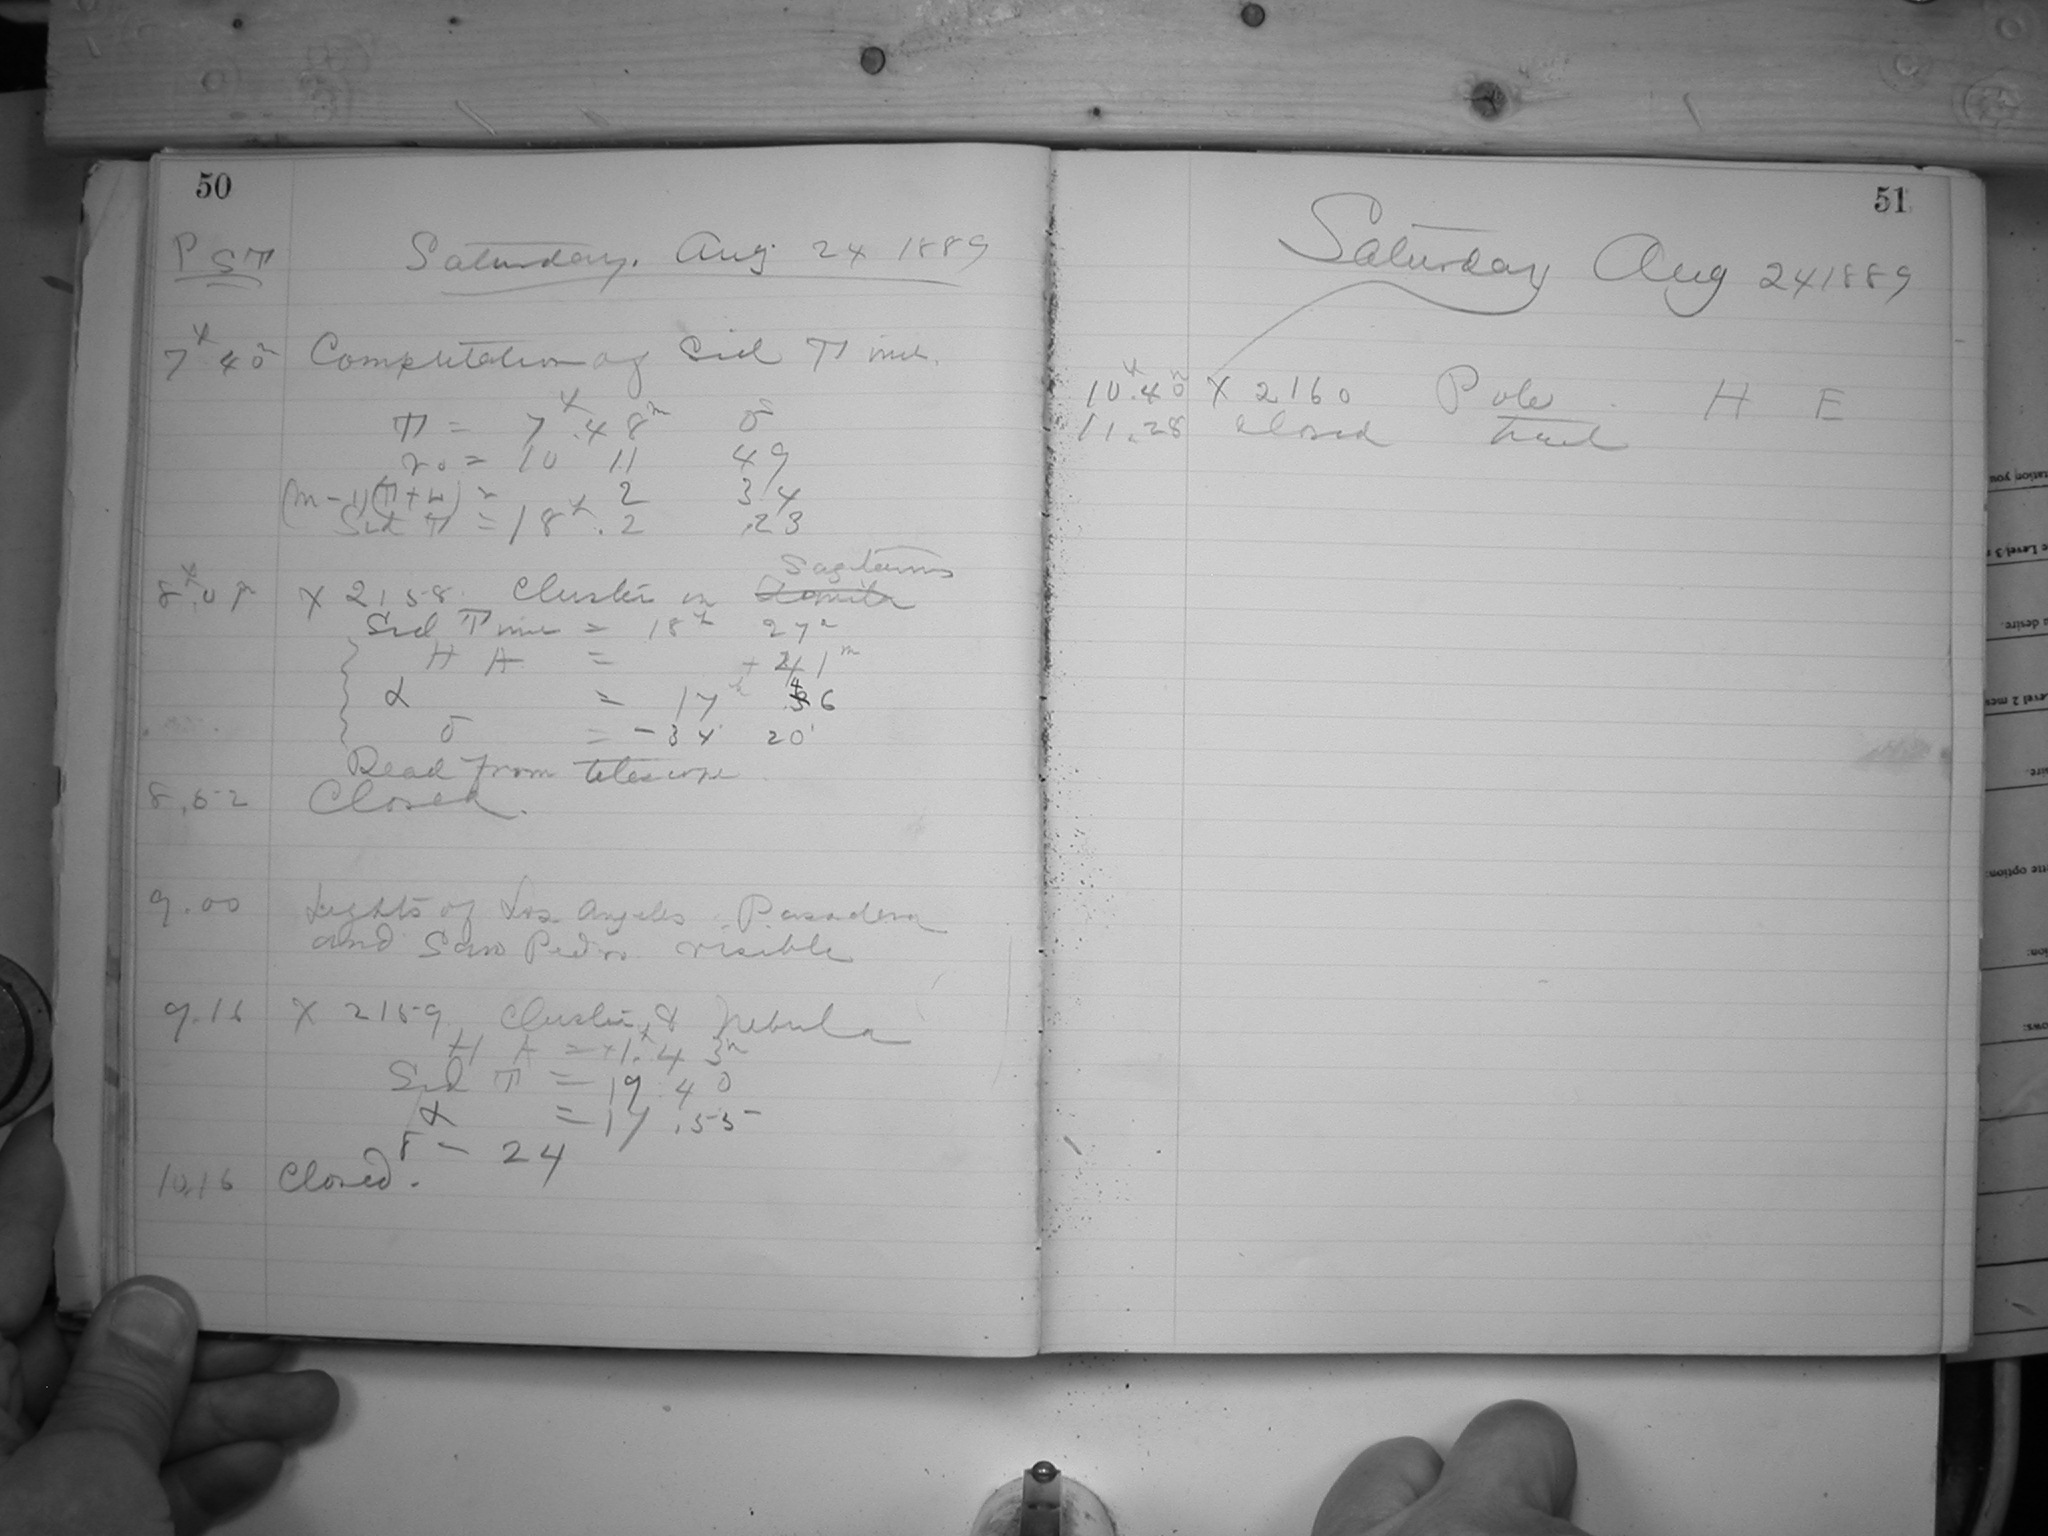 50
PST Saturday, Aug 24 1889
7h 40m Computation of Sid Time.
T = 7h.48m 0s
r0 = 10 11 49
(m-1)(T+L) = 2 34
Sid T = 18h.2 .23
Sagitarius
8h.0m X 2158. Cluster in
Sid Time = 18h 27m
H A = + 41m
α = 17h 46
δ = -34 20'
Read from telescope
8.52 Closed.
9.00 Lights of Los Angeles, Pasadena
and San Pedro visible
9.16 X 2159 Cluster & Nebula
H A = +1h.43m
Sid T = 19.40
α = 17.55
δ - 24
10.16 Closed.
51
Saturday Aug 24 1889
10h.40m X 2160 Pole H E
11.28 Closed trail